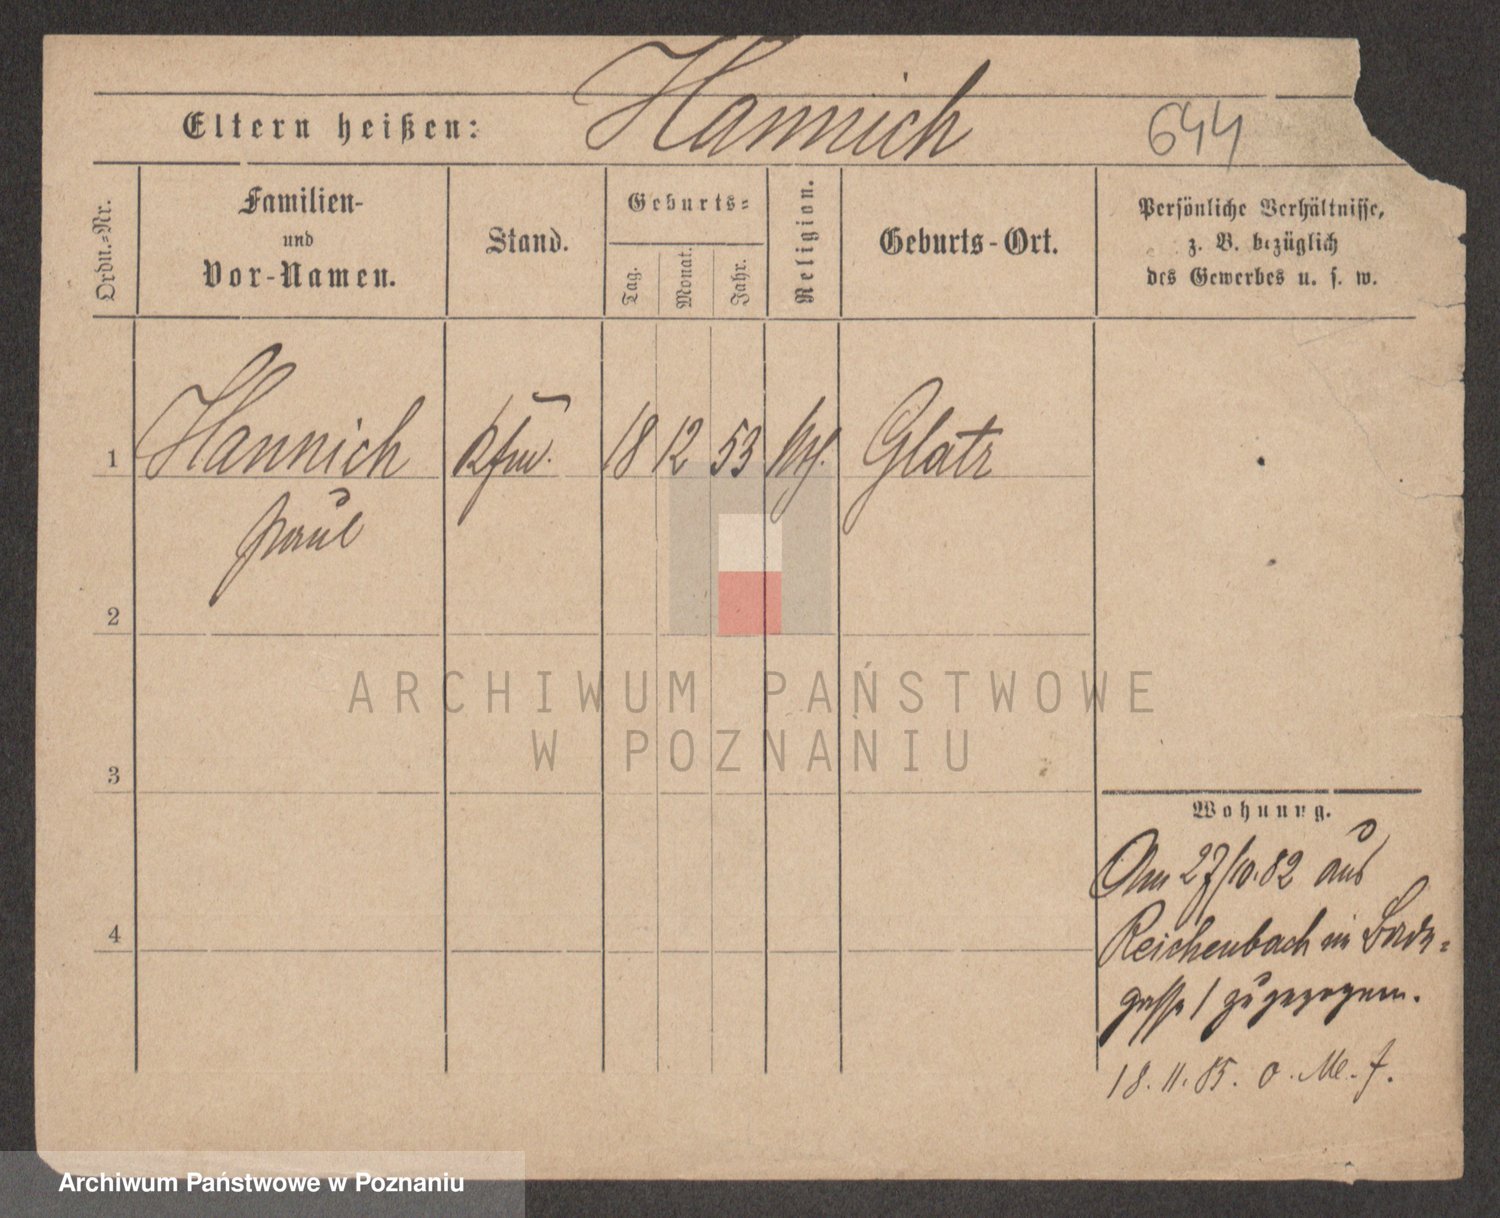 Hannich
Eltern heißen:
644
Ordn.-Nr.
Familien-
und
Vor-Namen.
Stand.
Geburts-
Tag.
Monat.
Jahr.
Religion.
Geburts-Ort.
Persönliche Verhältnisse,
z. B. bezüglich
des Gewerbes u. s. w.
1 Hannich Kfm. 18 12 53 Glatz
Paul
2
3
4
ARCHIWUM PAŃSTWOWE
W POZNANIU
Wohnung.
Am 27/10.82 aus
Reichenbach in
gasse 1 zugezogen.
18.11.85. o. M. f.
Archiwum Państwowe w Poznaniu